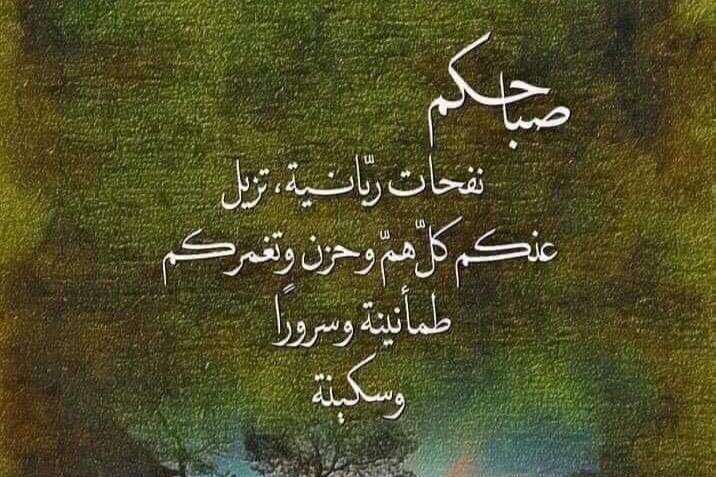 صباحكم
نفحات ربّانية، تزيل
عنكم كلّ همّ وحزن وتغمركم
طمأنينة وسرورًا
وسكينة